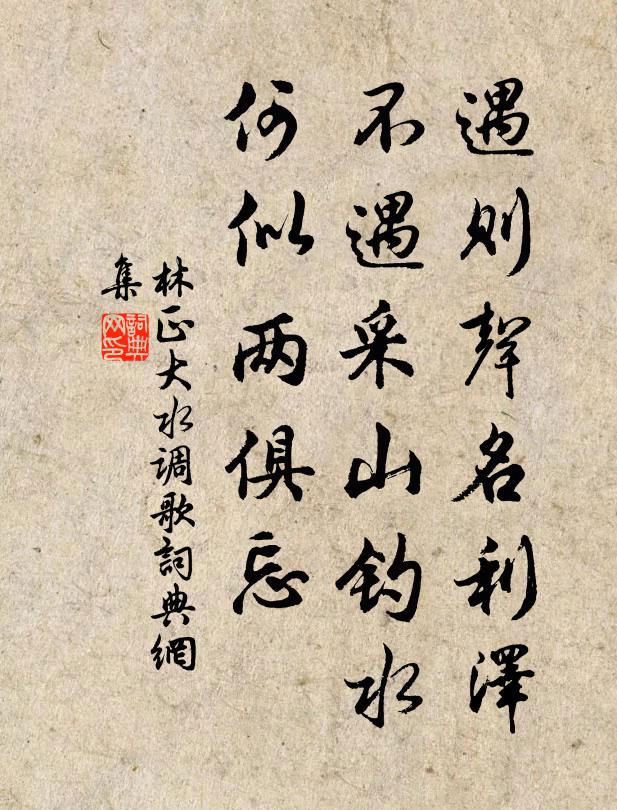 遇则聲名利澤
不遇采山钓水
何似两俱忘
林正大水调歌詞典網
集
詞典网印